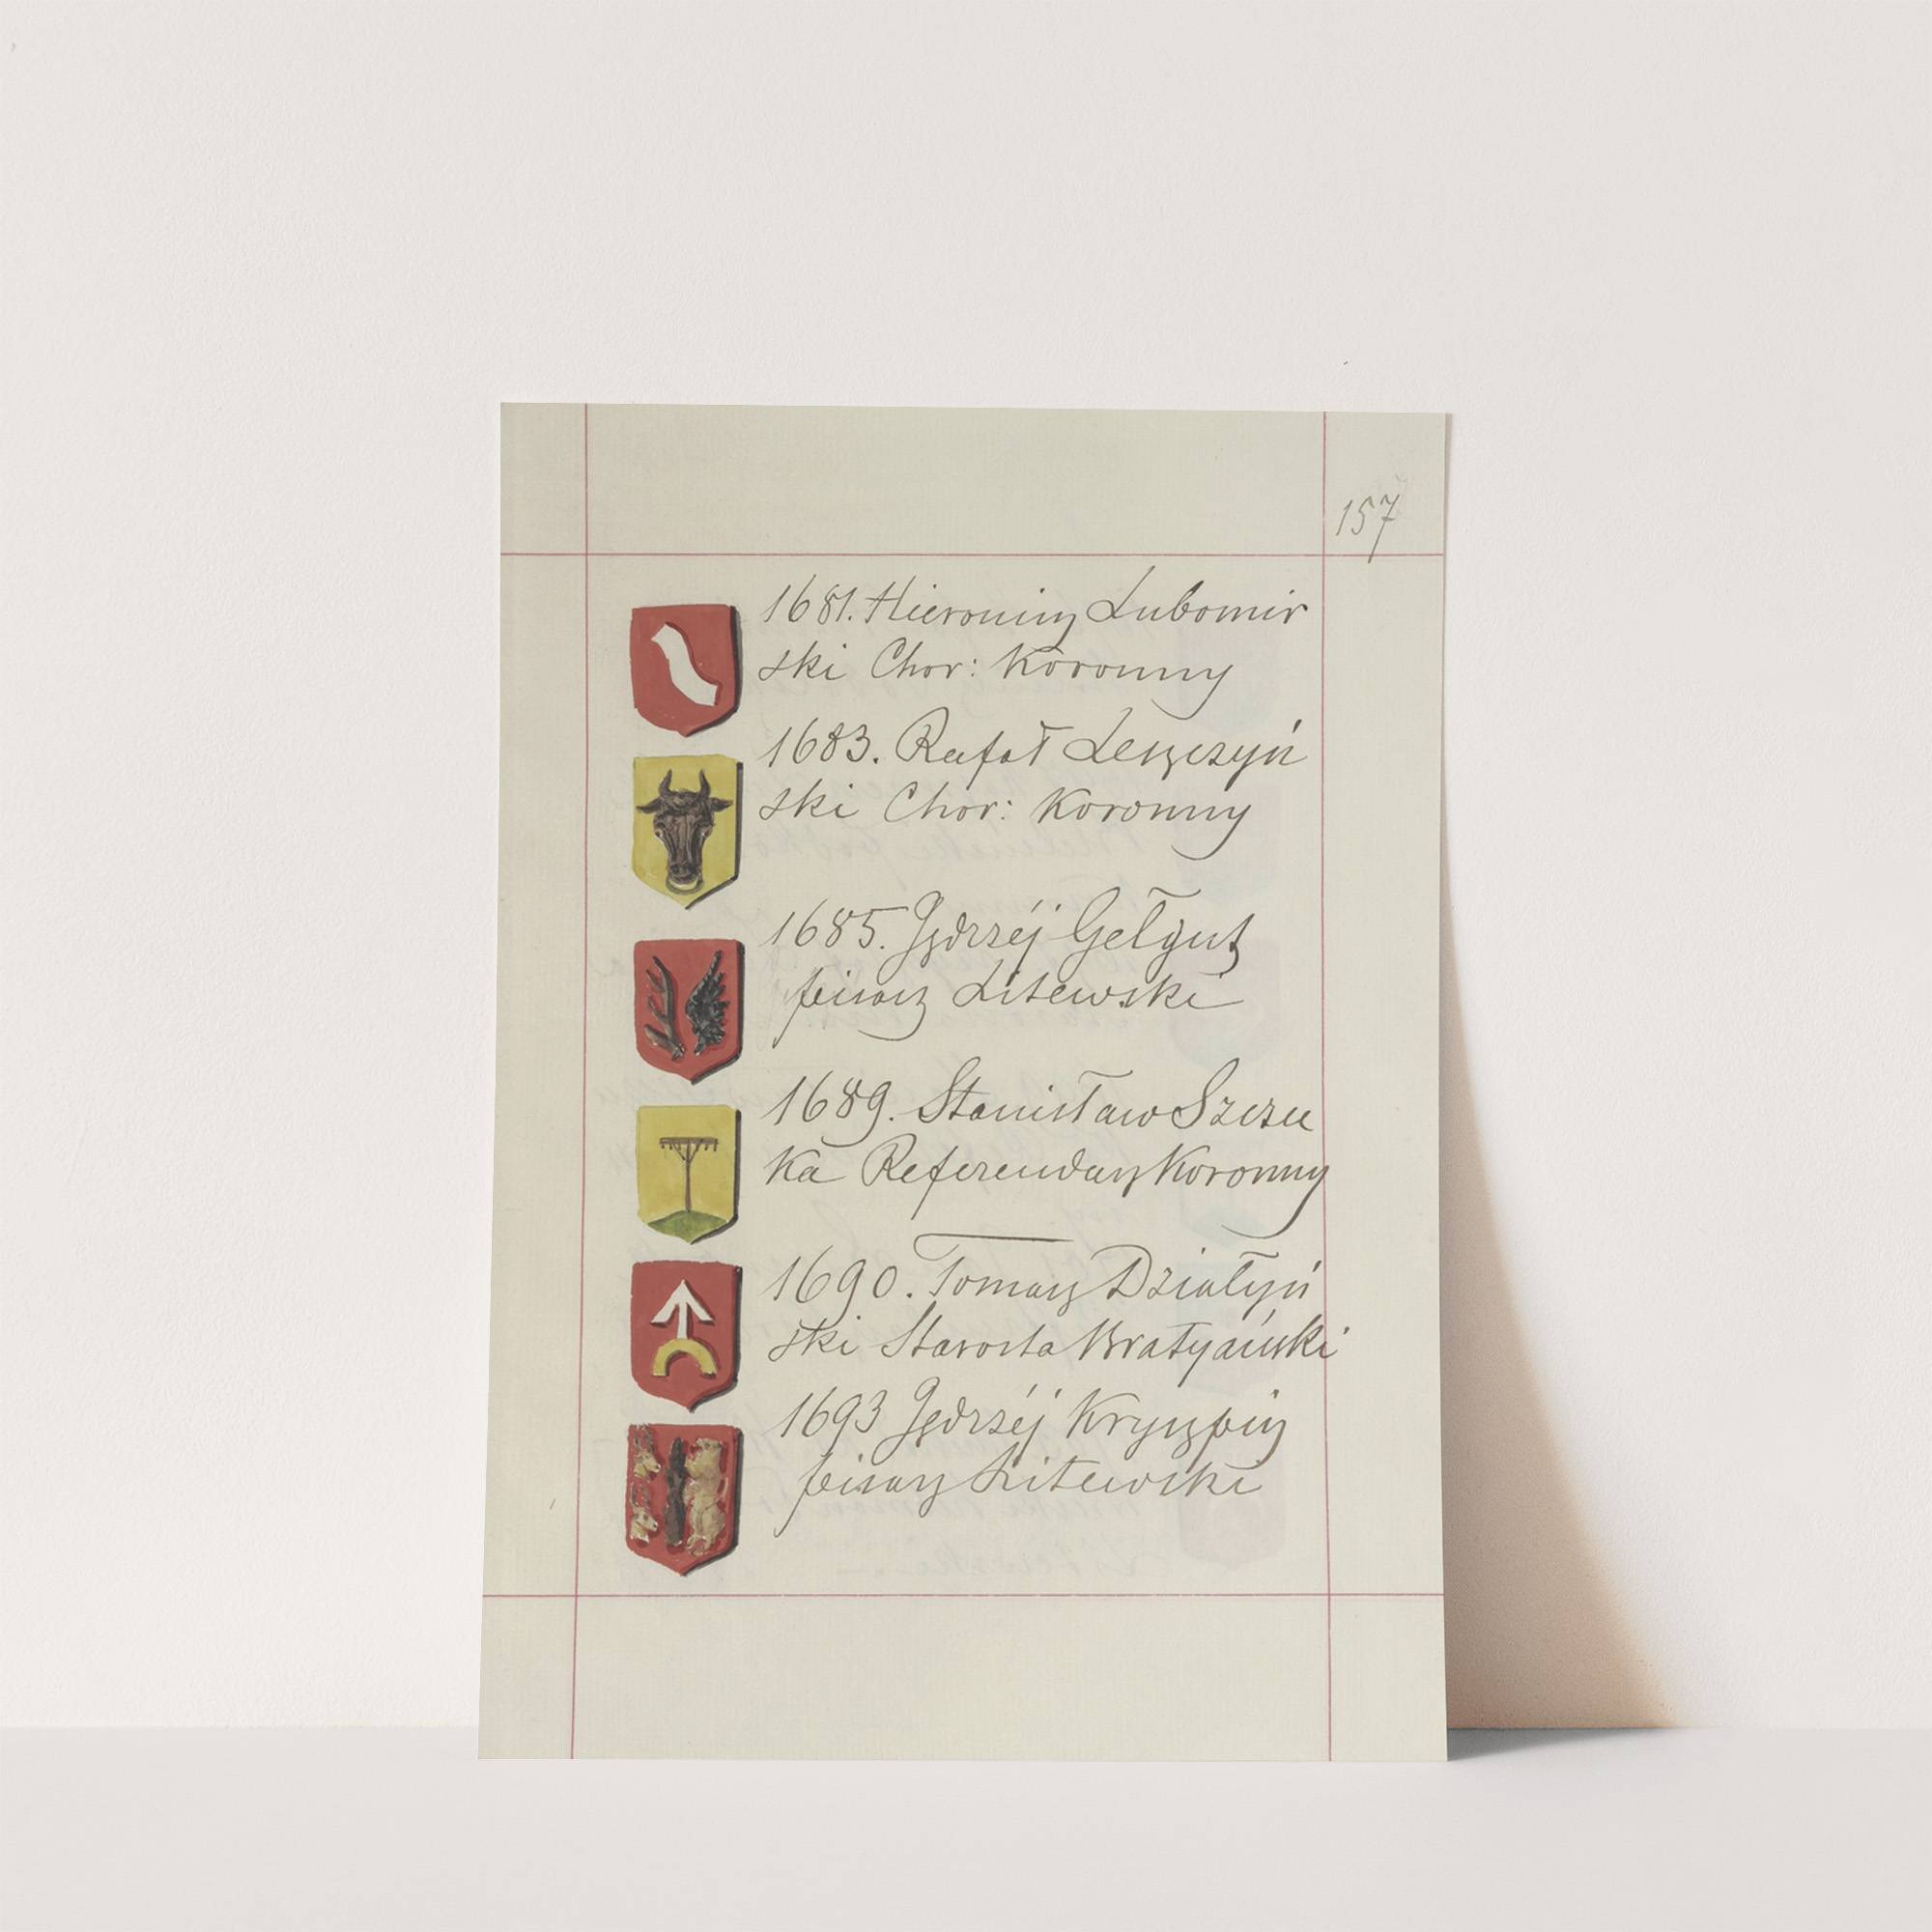 157
1681. Hieronim Lubomir
ski Chor: Koronny
1683. Rafał Leszczyń
ski Chor: Koronny
1685. Jędrzéj Gełgut
pisarz Litewski
1689. Stanisław Szczu
ka Referendarz Koronny
1690. Tomasz Działyń
ski Starosta Bratyański
1693 Jędrzéj Kryszpin
pisarz Litewski